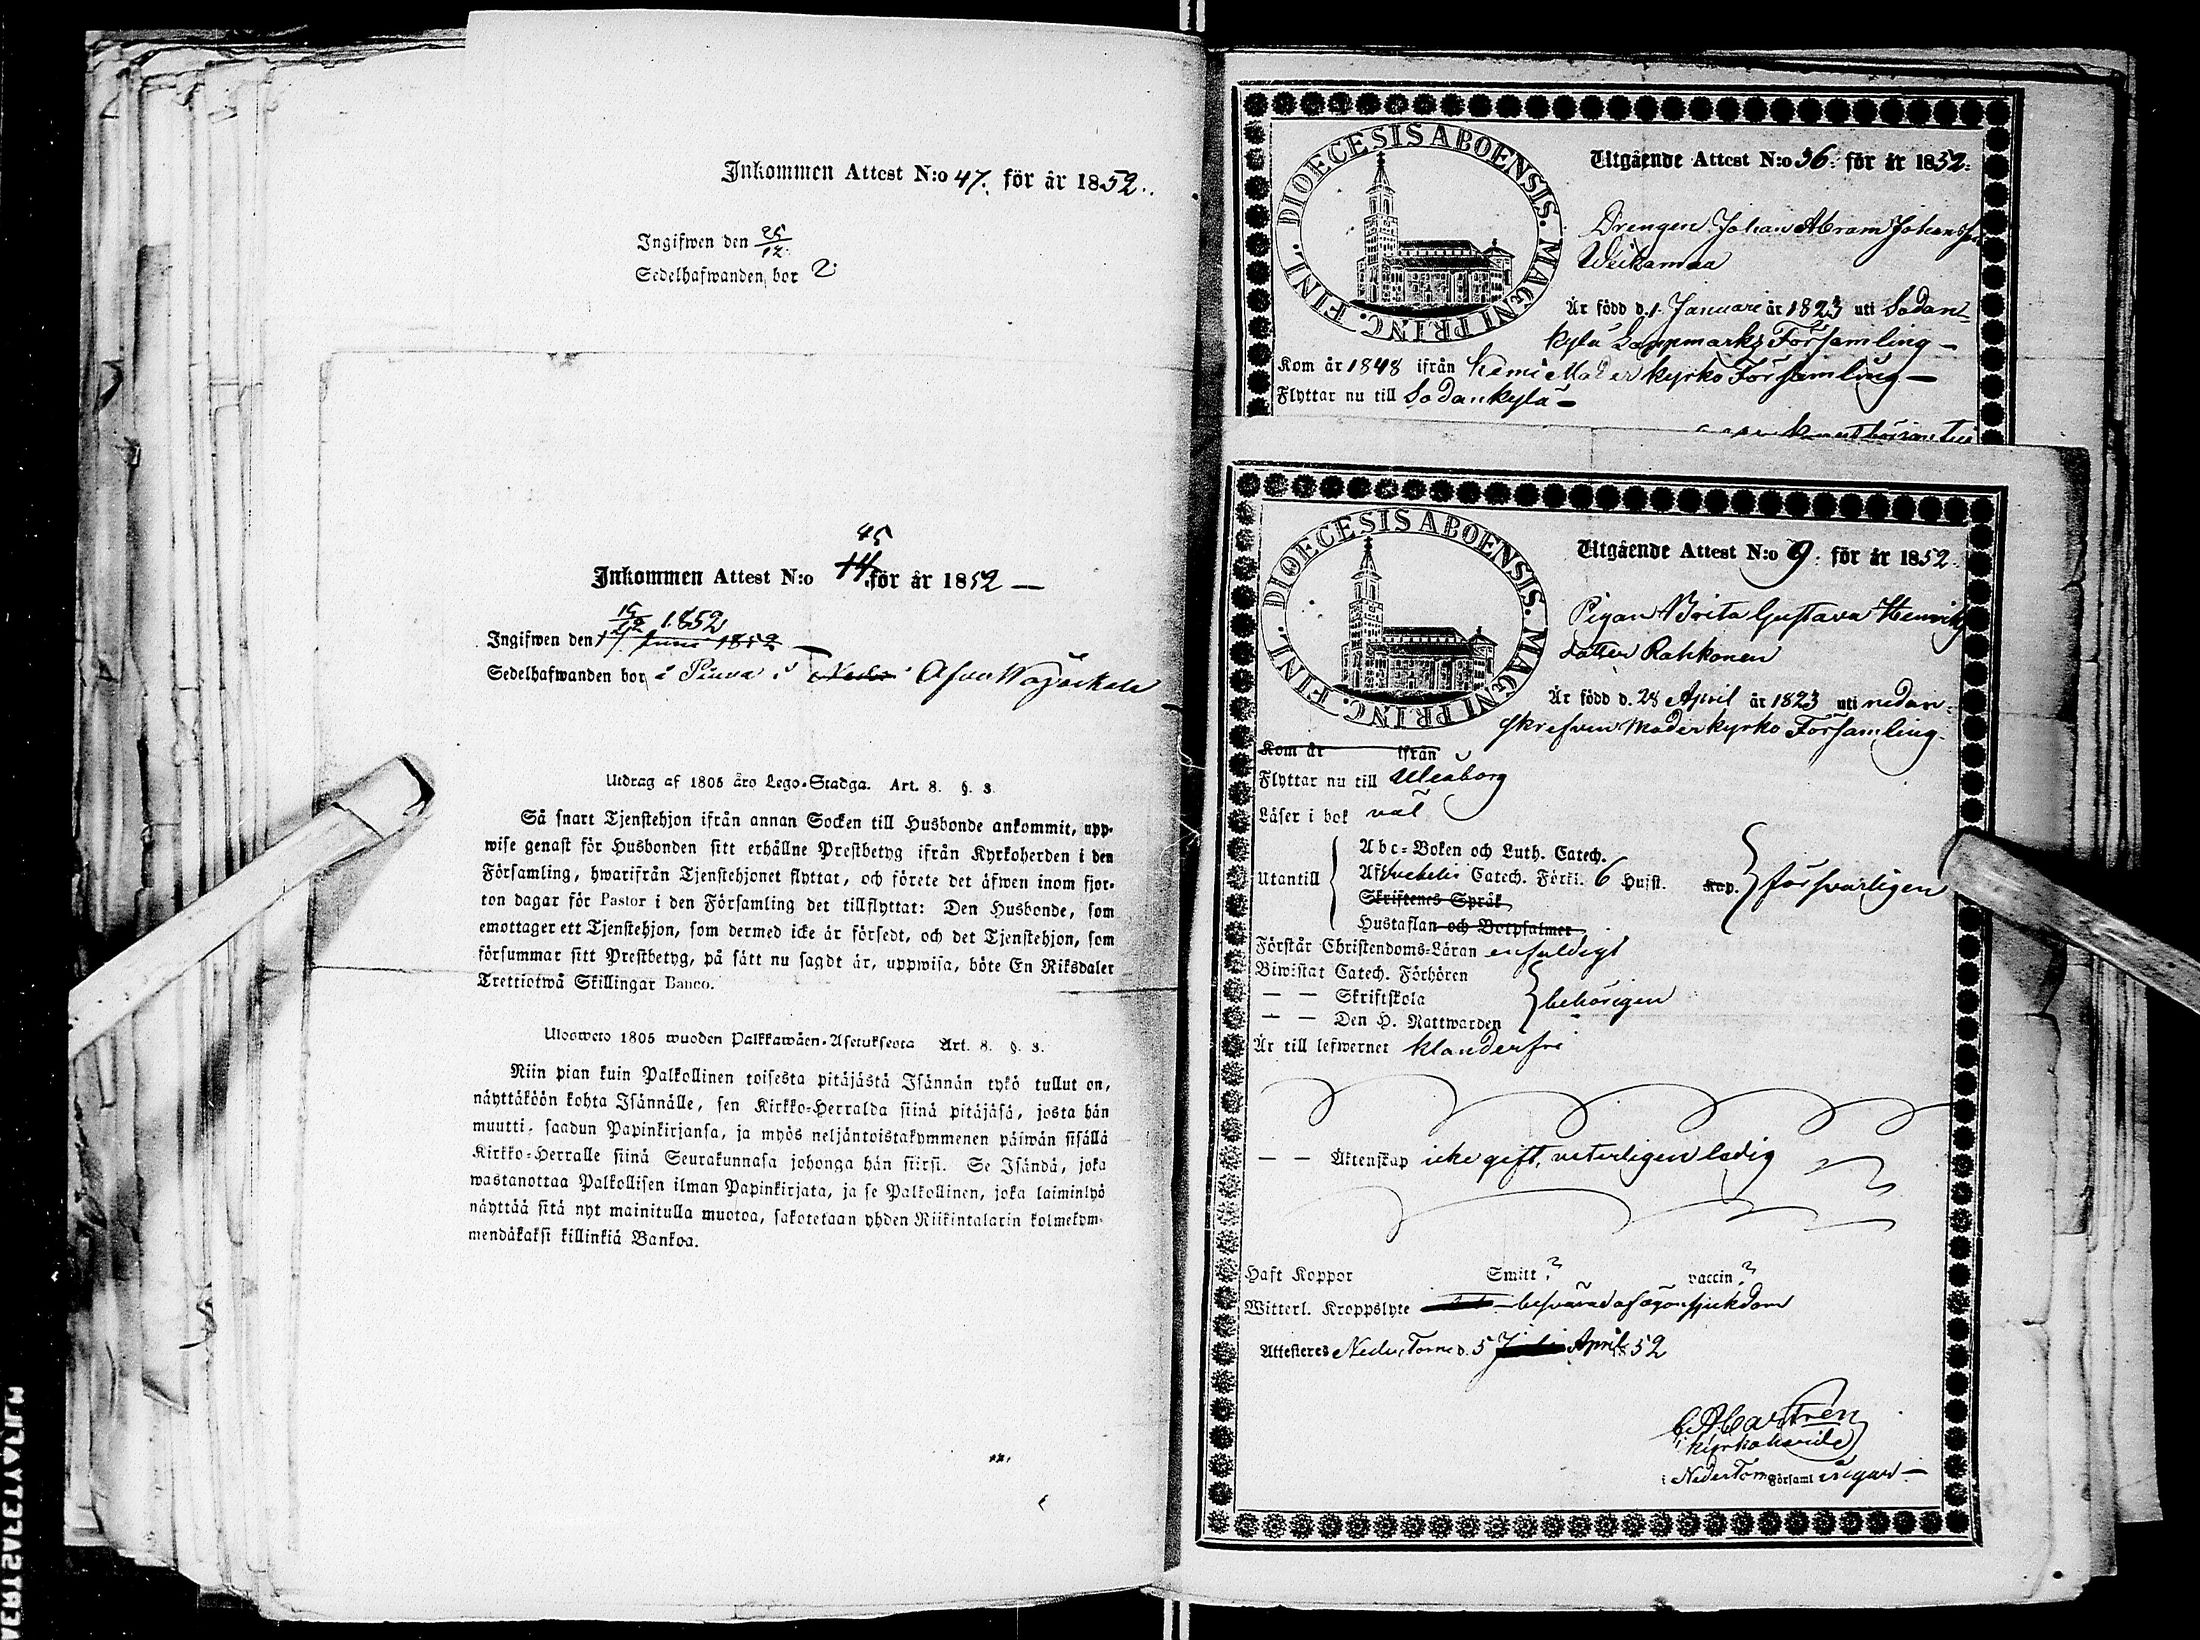 Inkommen Attest N:o 47. för år 1852.
Ingifwen den 25/12.
Sedelhafwanden bor 2
45
Inkommen Attest N:o 14 för år 1852 —
15/12 1852
Ingifwen den 17 Juni 1852 —
Sedelhafwanden bor i i Neder
Utdrag af 1805 års Lego-Stadga. Art. 8. §. 3.
Så snart Tjenstehjon ifrån annan Socken till Husbonde ankommit, upp-
wise genast för Husbonden sitt erhållne Prestbetyg ifrån Kyrkoherden i den
Församling, hwarifrån Tjenstehjonet flyttat, och förete det äfwen inom fjor-
ton dagar för Pastor i den Församling det tillflyttat: Den Husbonde, som
emottager ett Tjenstehjon, som dermed icke är försedt, och det Tjenstehjon, som
försummar sitt Prestbetyg, på sätt nu sagdt är, uppwisa, böte En Riksdaler
Trettiotwå Skillingar Banco.
Ulosweto 1805 wuoden Palkkawäen-Asetuksesta Art. 8. §. 3.
Niin pian kuin Palkollinen toisesta pitäjästä Isännän tykö tullut on,
näyttäköön kohta Isännälle, sen Kirkko-Herralda siinä pitäjäsä, josta hän
muutti, saadun Papinkirjansa, ja myös neljäntoistakymmenen päiwän sisällä
Kirkko-Herralle siinä Seurakunnasa johonga hän siirsi. Se Isändä, joka
wastanottaa Palkollisen ilman Papinkirjata, ja se Palkollinen, joka laiminlyö
näyttää sitä nyt mainitulla muotoa, sakotetaan yhden Riikintalarin kolmekym-
mendäkaksi killinkiä Bankoa.
DIOECESIS ABOENSIS. MAGNI PRINC. FINL.
Utgående Attest N:o 56. för år 1852.
Drengen Johan Abram Johansson
Weikamaa
Är född d. 1 Januari år 1823 uti Sodan-
kylä Lappmarks Församling —
Kom år 1848 ifrån Kemi Moderkyrko Församling —
Flyttar nu till Sodankylä —
DIOECESIS ABOENSIS. MAGNI PRINC. FINL.
Utgående Attest N:o 9. för år 1852.
Pigan Brita Gustava Henriks
dotter Rahkonen
Är född d. 28 April år 1823 uti nedan-
skrefven Moderkyrko Församling.
Kom år ifrån
Flyttar nu till Uleåborg
Läser i bok väl
Abc-Boken och Luth. Catech.
Utantill Af Svebelii Catech. Förkl. 6 Hufst. Kap. försvarligen
Skriftenes Språk
Hustaflan och Botpsalmer
Förstår Christendoms-Läran enfaldigt
Biwistat Catech. Förhören
— — Skriftskola behörigen
— — Den H. Nattwarden
Är till lefwernet klanderfri
— — Äktenskap icke gift, veterligen ledig
Haft Koppor Smitt ? vaccin ?
Witterl. Kroppslyte besvärad af ögonsjukdom
Attesteras Neder Torne d. 5 April 52
C A Castrén
Kyrkoherde
i Neder Torne Församl ingar —